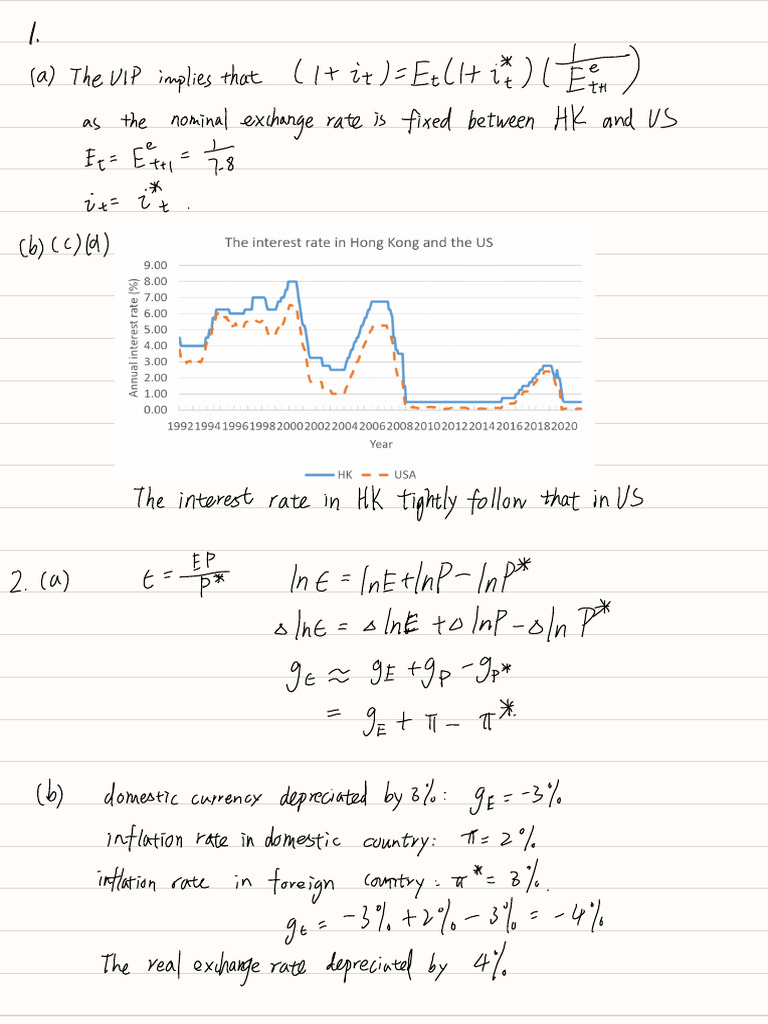 1.
(a) The UIP implies that (1+i_t)=E_t(1+i_t^*)(1/E_{t+1}^e)
as the nominal exchange rate is fixed between HK and US
E_t = E_{t+1}^e = 1/7.8
i_t = i_t^*.
(b)(c)(d)
The interest rate in Hong Kong and the US
Annual interest rate (%)
9.00
8.00
7.00
6.00
5.00
4.00
3.00
2.00
1.00
0.00
1992 1994 1996 1998 2000 2002 2004 2006 2008 2010 2012 2014 2016 2018 2020
Year
HK USA
The interest rate in HK tightly follow that in US
2. (a) ϵ = EP/P* lnϵ = lnE+lnP-lnP*
Δlnϵ = ΔlnE + ΔlnP - Δln P*
g_ϵ ≈ g_E + g_P - g_P*
= g_E + π - π*.
(b) domestic currency depreciated by 3%: g_E = -3%
inflation rate in domestic country: π = 2%
inflation rate in foreign country: π* = 3%.
g_ϵ = -3% + 2% - 3% = -4%
The real exchange rate depreciated by 4%